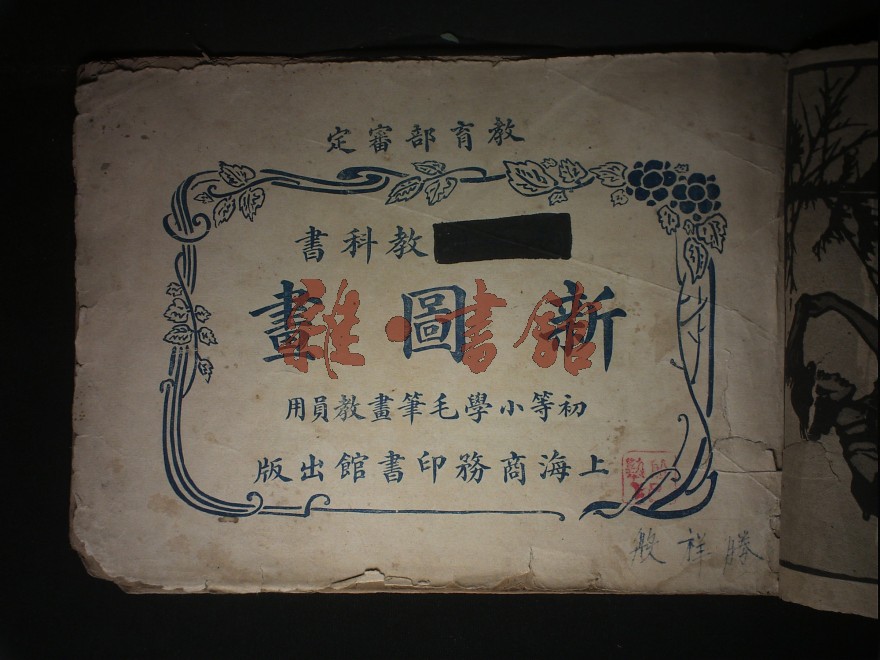 教育部審定
教科書
新圖畫
雜·書館
初等小學毛筆畫教員用
上海商務印書館出版
祥